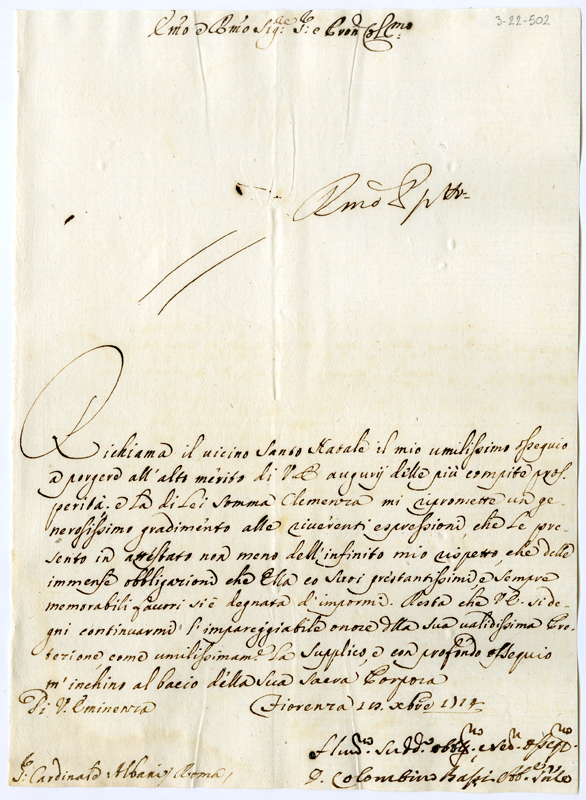 3-22-502
Emo e Rmo Sigre Sre e Pron Colmo
Rmo
Richiama il vicino Santo Natale il mio umilissimo ossequio
a porgere all'alto merito di V.E. augurij delle più compite pros-
perità; e la di Lei somma Clemenza mi ripromette un ge-
nerosissimo gradimento alle riverenti espressioni, che Le pre-
sento in attestato non meno dell'infinito mio rispetto, che delle
immense obbligazioni che Ella co suoi prestantissimi, e sempre
memorabili favori si è degnata d'impormi. Resta che V.E. si de-
gni continuarmi l'impareggiabile onore della sua validissima Pro-
tezione come umilissimamte La supplico, e con profondo ossequio
m'inchino al bacio della Sua Sacra Porpora
Di V. Eminenza Fiorenza xbre 1714
Colombino Bassi
Sr Cardinale Albani Roma